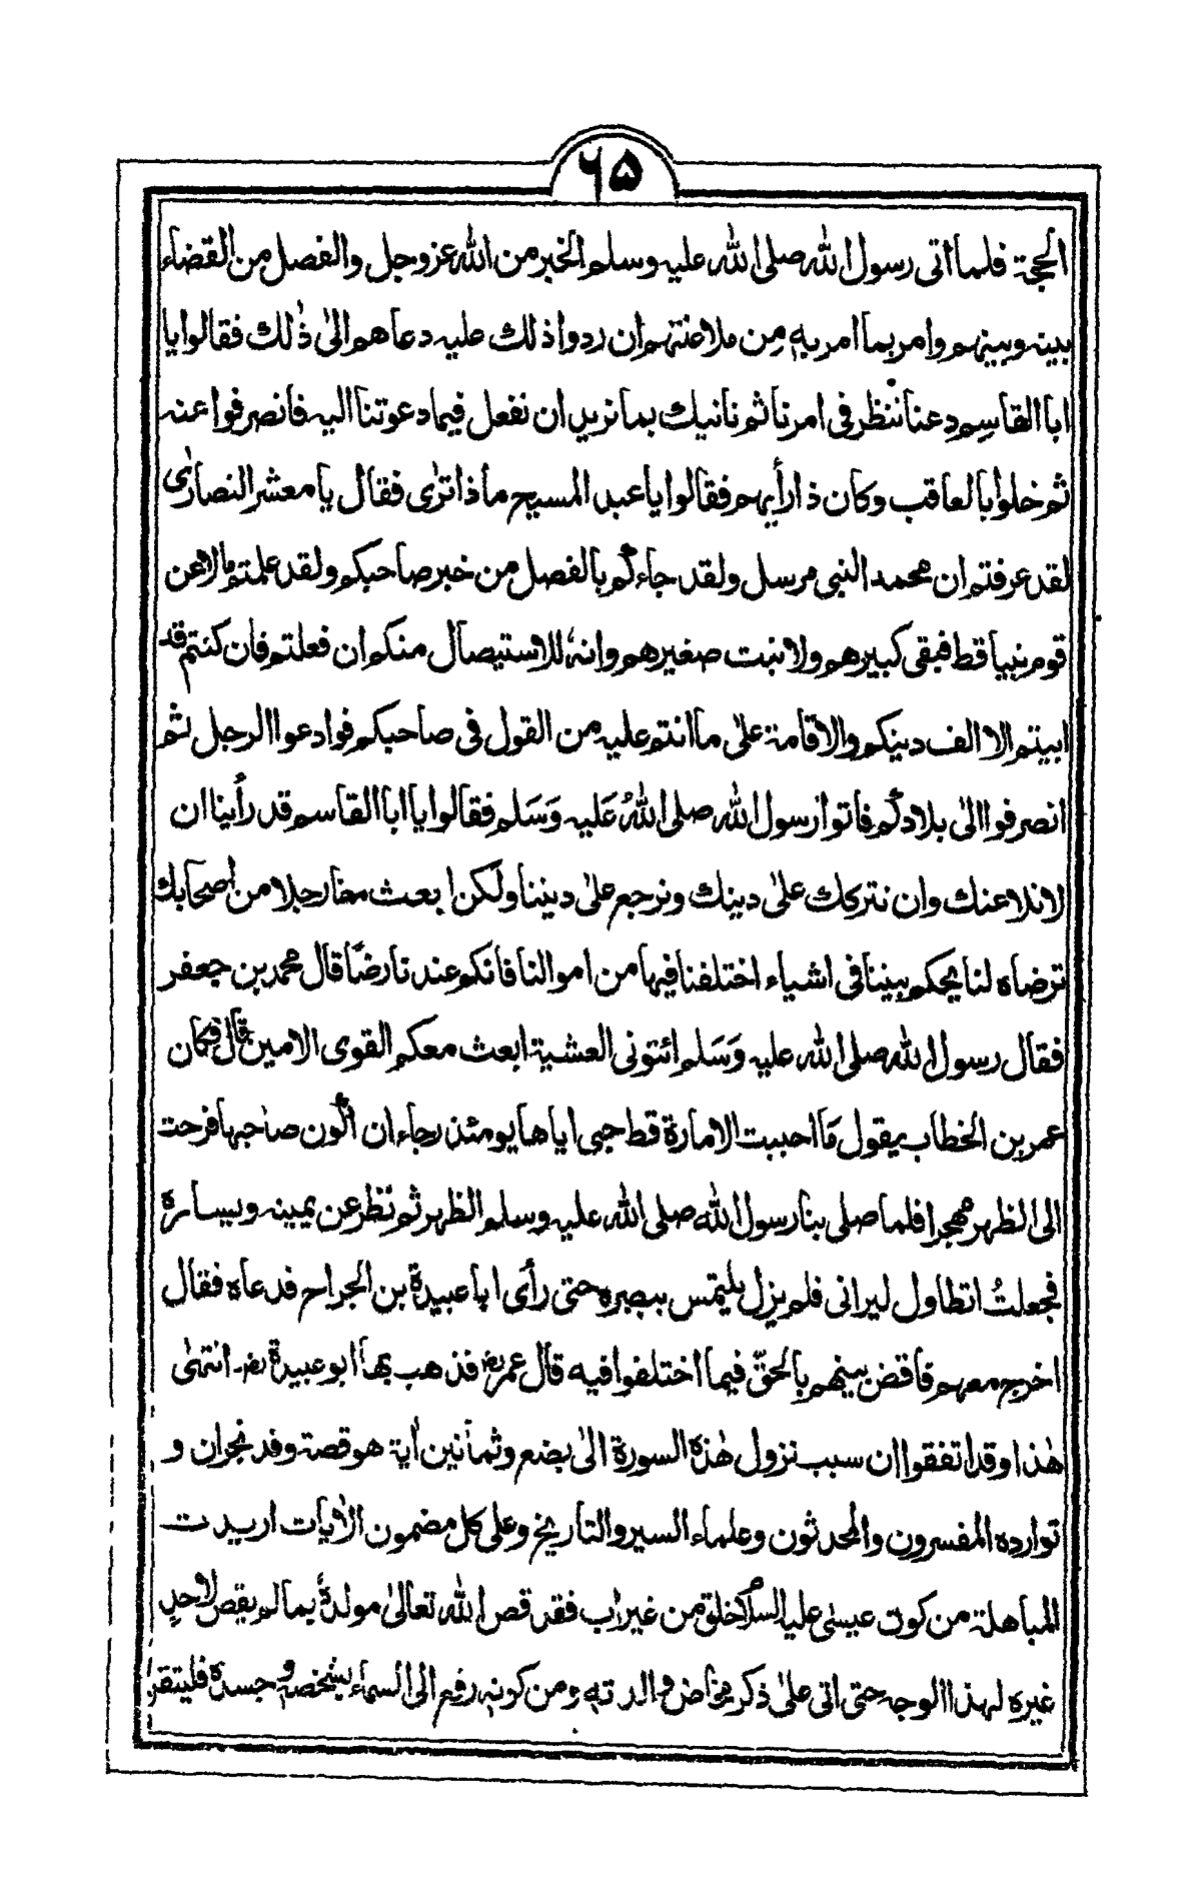 ۶۵
الحجة فلما اتى رسول الله صلى الله عليه وسلم الخبر من الله عز وجل والفصل من القضاء
بينه وبينهم وامر بما امر به مِن ملاعنتهم ان ردوا ذلك عليه دعاهم الىٰ ذٰلك فقالوا يا
ابا القاسِم دعنا ننظر فى امرنا ثم ناتيك بما نريد ان نفعل فيما دعوتنا اليه فانصرفوا عنه
ثم خلوا بالعاقب وكان ذا رأيهم فقالوا يا عبد المسيح ماذا ترٰى فقال يا معشر النصارٰى
لقد عرفتم ان محمد النبى مرسل ولقد جاءكم بالفصل من خبر صاحبكم ولقد علمتم ما لاعن
قوم نبيا قط فبقى كبيرهم ولا نبت صغيرهم وانهٗ للاستيصال منكم ان فعلتم فان كنتم قد
ابيتم الا الف دينكم والاقامة علىٰ ما انتم عليه من القول فى صاحبكم فوادعوا الرجل ثم
انصرفوا الىٰ بلادكم فاتوا رسول الله صلى اللهُ عَليه وَسَلم فقالوا يا ابا القاسم قد رأينا ان
لا نلاعنك وان نتركك علىٰ دينك ونرجع علىٰ ديننا ولكن ابعث معنا رجلا من اصحابك
ترضاه لنا يحكم بيننا فى اشياء اختلفنا فيها من اموالنا فانكم عندنا رضًا قال محمد بن جعفر
فقال رسول الله صلى الله عليه وَسَلم ائتونى العشية ابعث معكم القوى الامين قال فكان
عمر بن الخطاب يقول مَا احببت الامارة قط حبى اياها يومئذ رجاء ان اكون صاحبها فرحت
الى الظهر مهجرا فلما صلى بنا رسول الله صلى الله عليه وسلم الظهر ثم نظر عن يمينه ويساره
فجعلتُ اتطاول ليرانى فلم يزل يلتمس ببصرهٖ حتى رأى ابا عبيدة بن الجراح فدعاه فقال
اخرج معهم فاقض بينهم بالحقّ فيما اختلفوا فيه قال عمرؓ فذهب بها ابو عبيدة رضـ انتهىٰ
هٰذا وقد اتفقوا ان سبب نزول هٰذه السورة الىٰ بضع وثمانين اٰية هو قصة وفد نجران و
توارده المفسرون والمحدثون وعلماء السير والتاريخ وعلى كل مضمون الاٰيات اريدت
المباهلة من كون عيسىٰ عليه السلام خلق من غير اب فقد قص الله تعالىٰ مولدهٗ بما لم يقص لاحدٍ
غيره لهذا الوجه حتى اتى علىٰ ذكر مخاض والدتهٖ ومن كونهٖ رفع الى السماء بشخصهٖ وجسدهٖ فليتقرر